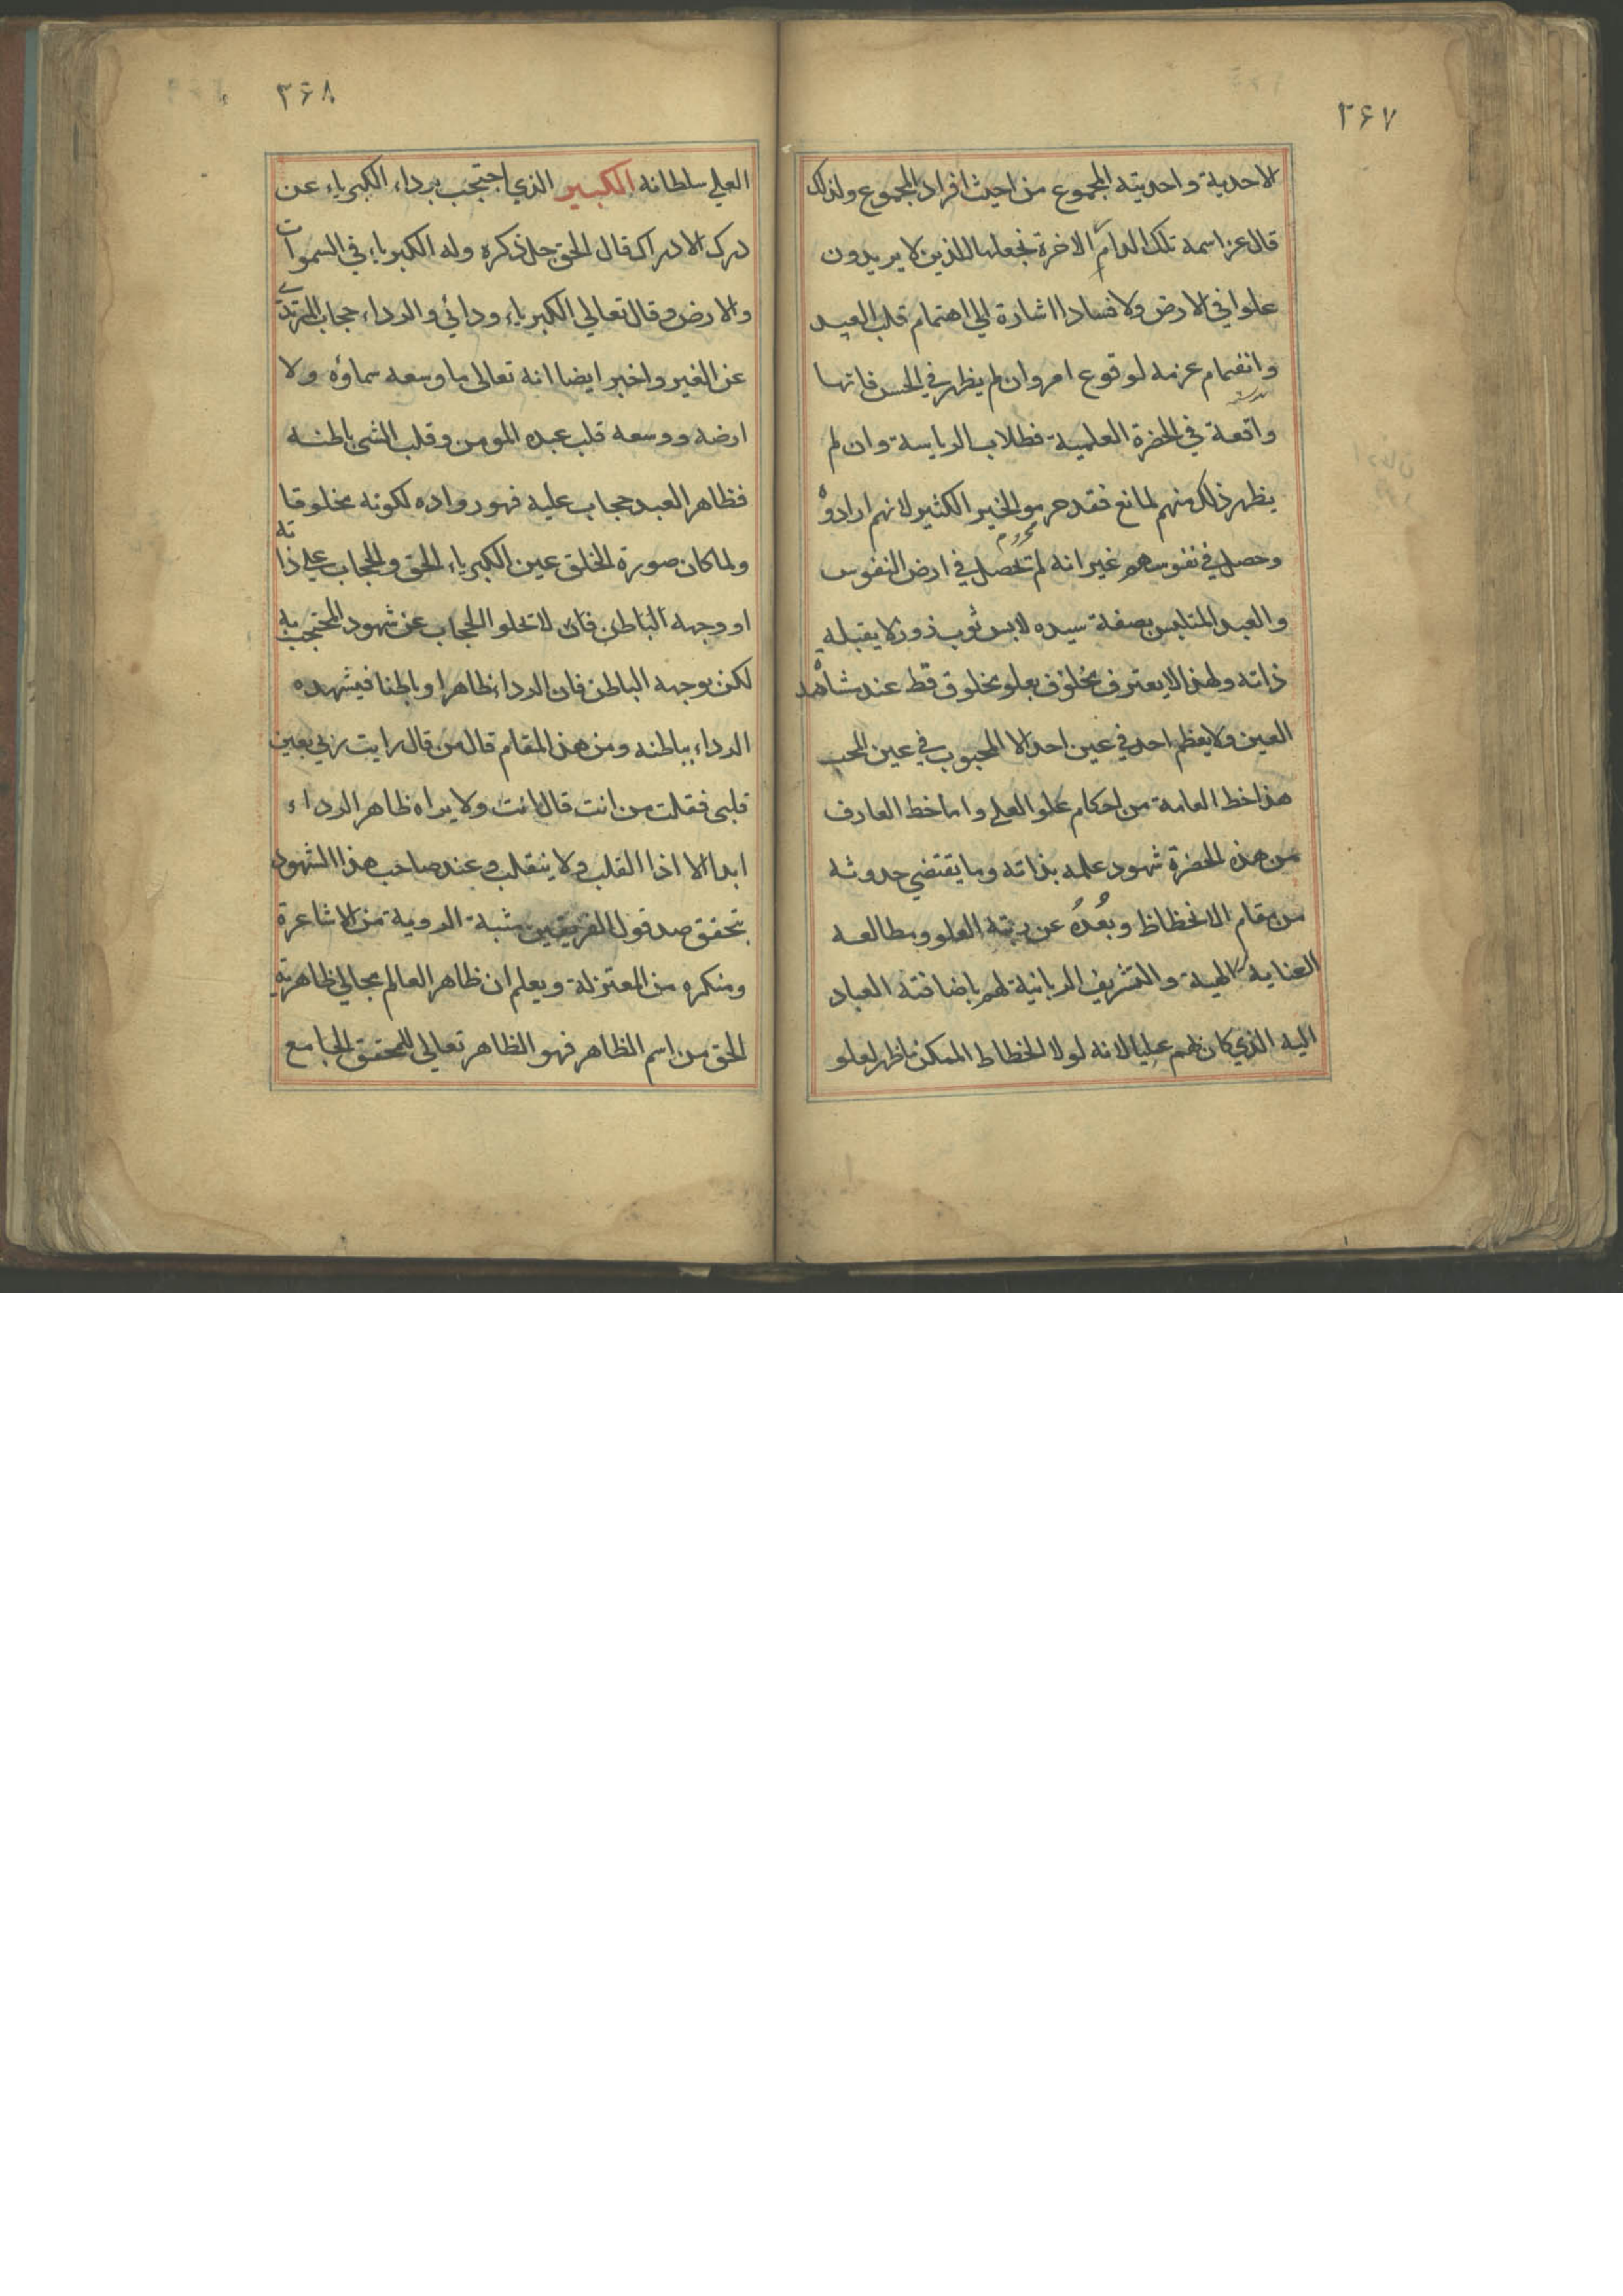 ٢٦٧
الاحدية واحديته المجموع من احيث افراد المجموع ولذلك
قال عز اسمه تلك الدار الاخرة نجعلها للذين لا يريدون
علوا في الارض ولا فسادا اشارة الى اهتمام قلب العبد
وانضمام عزمه لوقوع امر وان لم يظهر في الحس فانها
واقعة في الحضرة العلمية فطلاب الرياسة وان لم
يظهر ذلك منهم لمانع فقد حرموا الخير الكثير لانهم ارادوه
وحصل في نفوسهم غير انه لم تحصل في ارض النفوس
والعبد المتلبس بصفة سيده لابس ثوب زور لا يقبله
ذاته ولهذا لا يعترف مخلوق بعلو مخلوق قط عند مشاهد
العين ولا يعظم احد في عين احد الا المحبوب في عين المحب
هذا خط العامة من احكام علو العلي واما خط العارف
من هذه الحضرة شهود علمه بذاته وما يقتضي حدوثه
من مقام الانخطاظ وبُعدُه عن رتبة العلو ومطالعه
العناية الالهية والتشريف الربانية لهم باضافته العباد
اليه الذي كان لهم عليا لانه لولا الخطاط الممكن ما ظهر لعلو
٢٦٨
العلي سلطانه الكبير الذي احتجب برداء الكبرياء عن
درك الادراك قال الحق جل ذكره وله الكبرياء في السموات
والارض وقال تعالي الكبرياء ودائي والرداء حجاب المرتدي
عن الغير واخبر ايضا انه تعالى ما وسعه سماؤه ولا
ارضه ووسعه قلب عبده المومن وقلب الشى باطنه
فظاهر العبد حجاب عليه فهو رواده لكونه مخلوقا
ولما كان صورة الخلق عين الكبرياء الحق والحجاب علي ذاته
او وجهه الباطن فان لا تخلوا الحجاب عن شهود المحتجب به
لكن بوجهه الباطن فان الرداء ظاهرا وباطنا فيشهده
الرداء بباطنه ومن هذا المقام قال من قال رايت ربي بعين
قلبي فقلت من انت قال انت ولا يراه ظاهر الرداء
ابدا الا اذا القلب ولا ينقلب وعند صاحب هذا الشهود
يتحقق صد قول الفريقين مثبة الروية من الاشاعرة
ومنكره من المعتزلة ويعلم ان ظاهر العالم مجالي ظاهرية
الحق من اسم الظاهر فهو الظاهر تعالى للمحقق الجامع